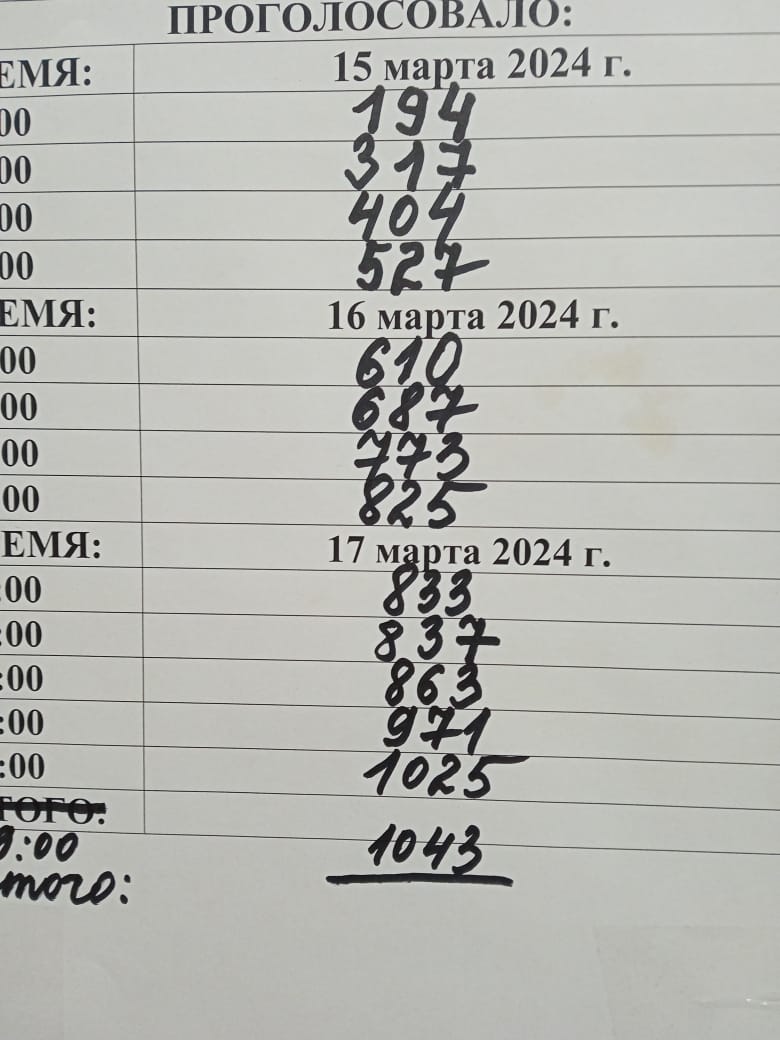 ПРОГОЛОСОВАЛО:
ЕМЯ: 15 марта 2024 г.
00 194
00 317
00 404
00 527
ЕМЯ: 16 марта 2024 г.
00 610
00 687
00 773
00 825
ЕМЯ: 17 марта 2024 г.
:00 833
:00 837
:00 863
:00 971
:00 1025
ТОГО:
:00 1043
того: